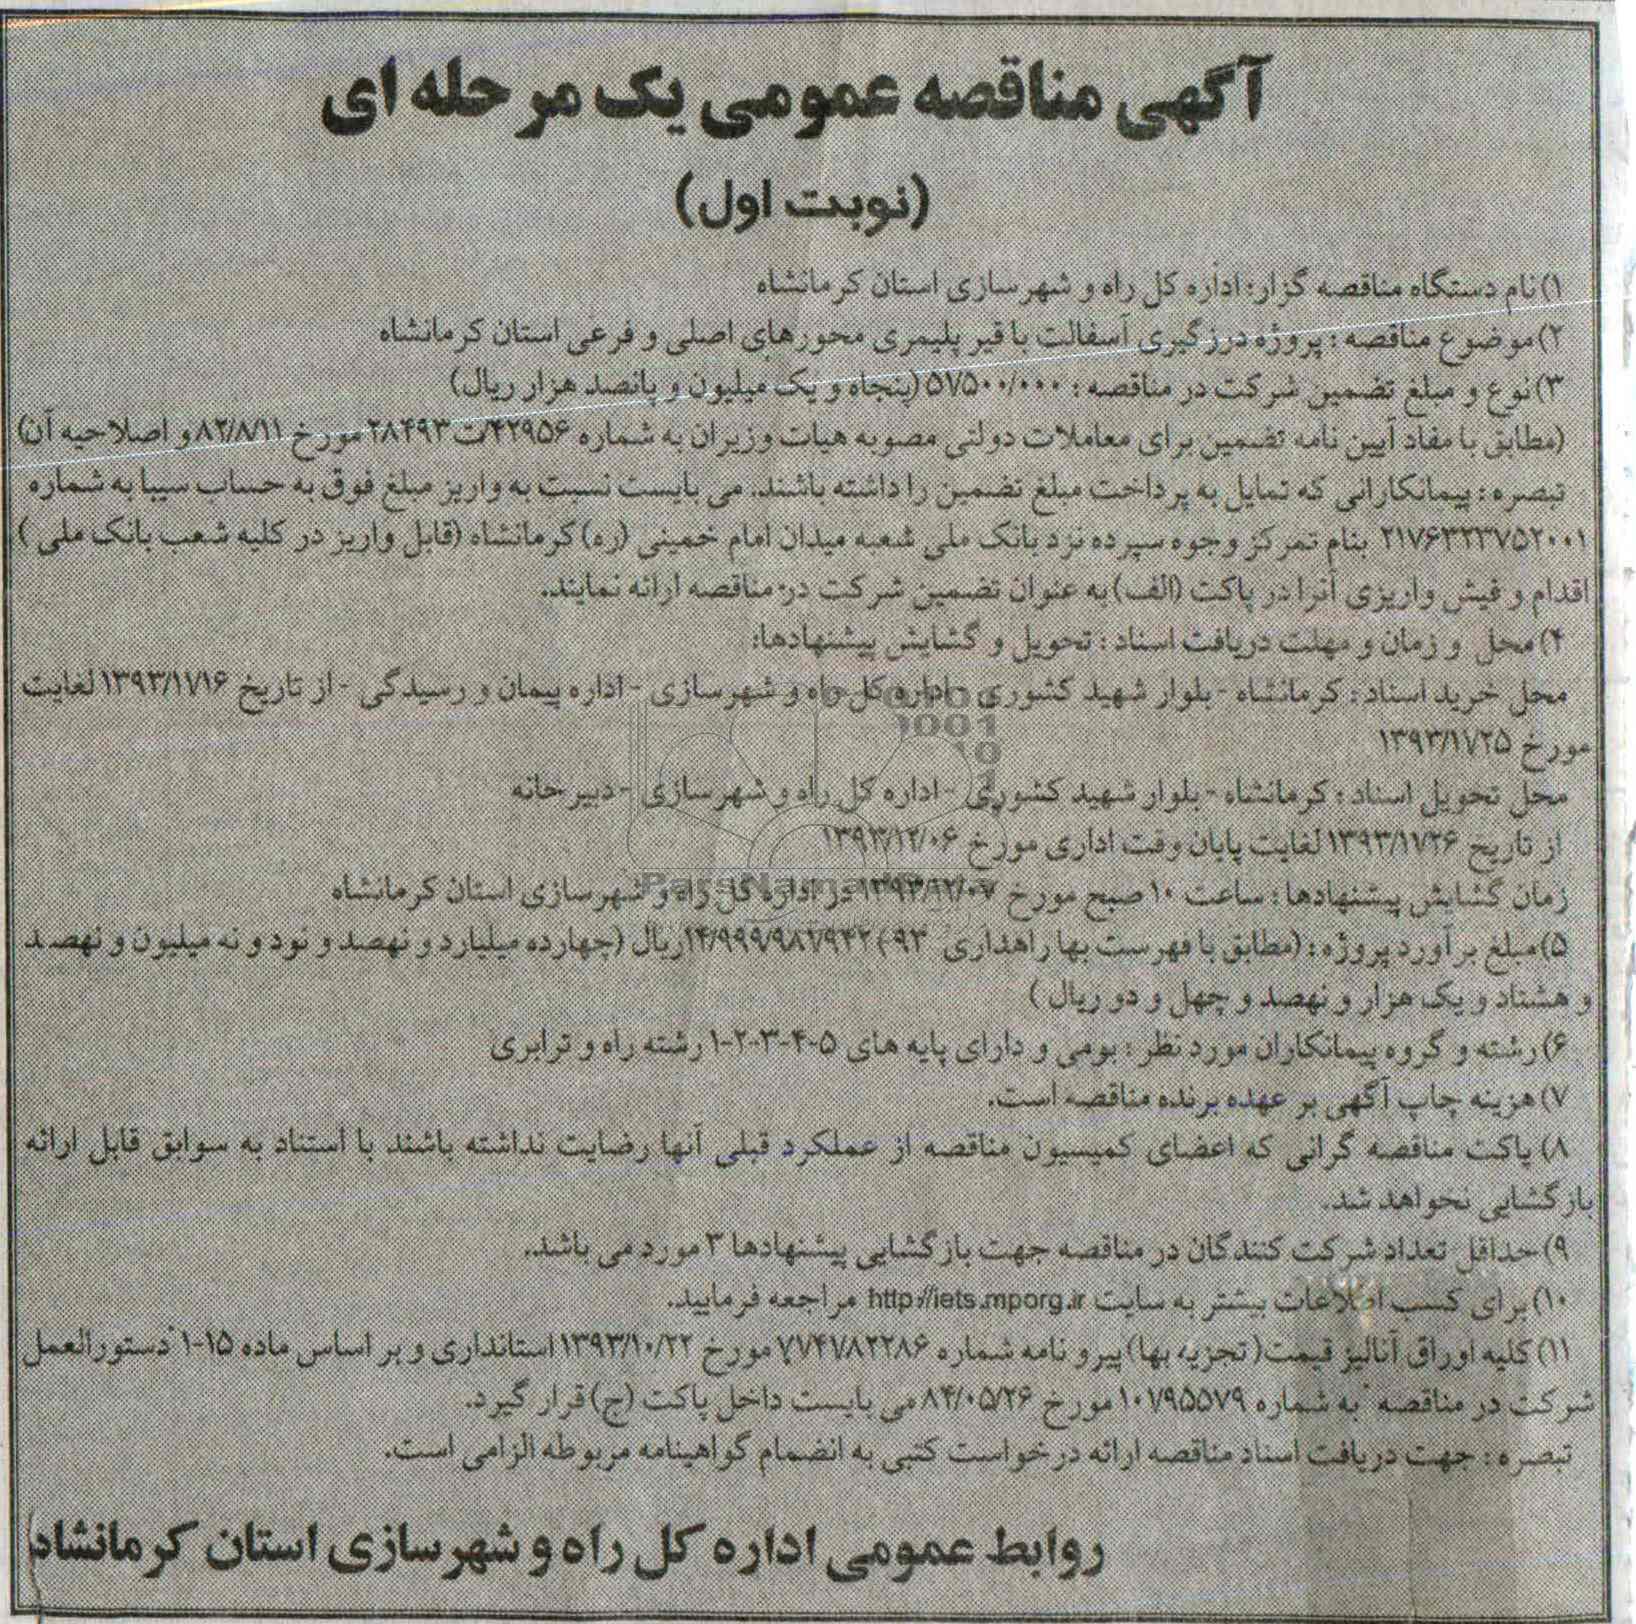 آگهی مناقصه عمومی یک مرحله ای
(نوبت اول)
۱) نام دستگاه مناقصه گزار: اداره کل راه و شهرسازی استان کرمانشاه
۲) موضوع مناقصه : پروژه درزگیری آسفالت با قیر پلیمری محورهای اصلی و فرعی استان کرمانشاه
۳) نوع و مبلغ تضمین شرکت در مناقصه : ۵۷۵۰۰/۰۰۰ (پنجاه و یک میلیون و پانصد هزار ریال)
(مطابق با مفاد آیین نامه تضمین برای معاملات دولتی مصوبه هیات وزیران به شماره ۴۲۹۵۶/ت۲۸۴۹۳ مورخ ۸۲/۸/۱۱ و اصلاحیه آن)
تبصره : پیمانکارانی که تمایل به پرداخت مبلغ تضمین را داشته باشند. می بایست نسبت به واریز مبلغ فوق به حساب سیبا به شماره
۲۱۷۶۳۲۳۷۵۲۰۰۱ بنام تمرکز وجوه سپرده نزد بانک ملی شعبه میدان امام خمینی (ره) کرمانشاه (قابل واریز در کلیه شعب بانک ملی )
اقدام و فیش واریزی آنرا در پاکت (الف) به عنوان تضمین شرکت در مناقصه ارائه نمایند.
۴) محل و زمان و مهلت دریافت اسناد : تحویل و گشایش پیشنهادها:
محل خرید اسناد : کرمانشاه - بلوار شهید کشوری - اداره کل راه و شهرسازی - اداره پیمان و رسیدگی - از تاریخ ۱۳۹۳/۱۱/۱۶ لغایت
مورخ ۱۳۹۳/۱۱/۲۵
محل تحویل اسناد : کرمانشاه - بلوار شهید کشوری - اداره کل راه و شهرسازی - دبیرخانه
از تاریخ ۱۳۹۳/۱۱/۲۶ لغایت پایان وقت اداری مورخ ۱۳۹۳/۱۲/۰۶
زمان گشایش پیشنهادها : ساعت ۱۰ صبح مورخ ۱۳۹۳/۱۲/۰۷ در اداره کل راه و شهرسازی استان کرمانشاه
۵) مبلغ برآورد پروژه : (مطابق با فهرست بها راهداری ۹۳) ۱۴/۹۹۹/۹۸۱/۹۴۲ ریال (چهارده میلیارد و نهصد و نود و نه میلیون و نهصد
و هشتاد و یک هزار و نهصد و چهل و دو ریال )
۶) رشته و گروه پیمانکاران مورد نظر : بومی و دارای پایه های ۵-۴-۳-۲-۱ رشته راه و ترابری
۷) هزینه چاپ آگهی بر عهده برنده مناقصه است.
۸) پاکت مناقصه گرانی که اعضای کمیسیون مناقصه از عملکرد قبلی آنها رضایت نداشته باشند با استناد به سوابق قابل ارائه
بازگشایی نخواهد شد.
۹) حداقل تعداد شرکت کنندگان در مناقصه جهت بازگشایی پیشنهادها ۳ مورد می باشد.
۱۰) برای کسب اطلاعات بیشتر به سایت http://iets.mporg.ir مراجعه فرمایید.
۱۱) کلیه اوراق آنالیز قیمت( تجزیه بها) پیرو نامه شماره ۷۷۴۷/۸۲۲۸۶ مورخ ۱۳۹۳/۱۰/۲۲ استانداری و بر اساس ماده ۱۵-۱ "دستورالعمل
شرکت در مناقصه" به شماره ۱۰۱/۹۵۵۷۹ مورخ ۸۴/۰۵/۲۶ می بایست داخل پاکت (ج) قرار گیرد.
تبصره : جهت دریافت اسناد مناقصه ارائه درخواست کتبی به انضمام گواهینامه مربوطه الزامی است.
روابط عمومی اداره کل راه و شهرسازی استان کرمانشاه